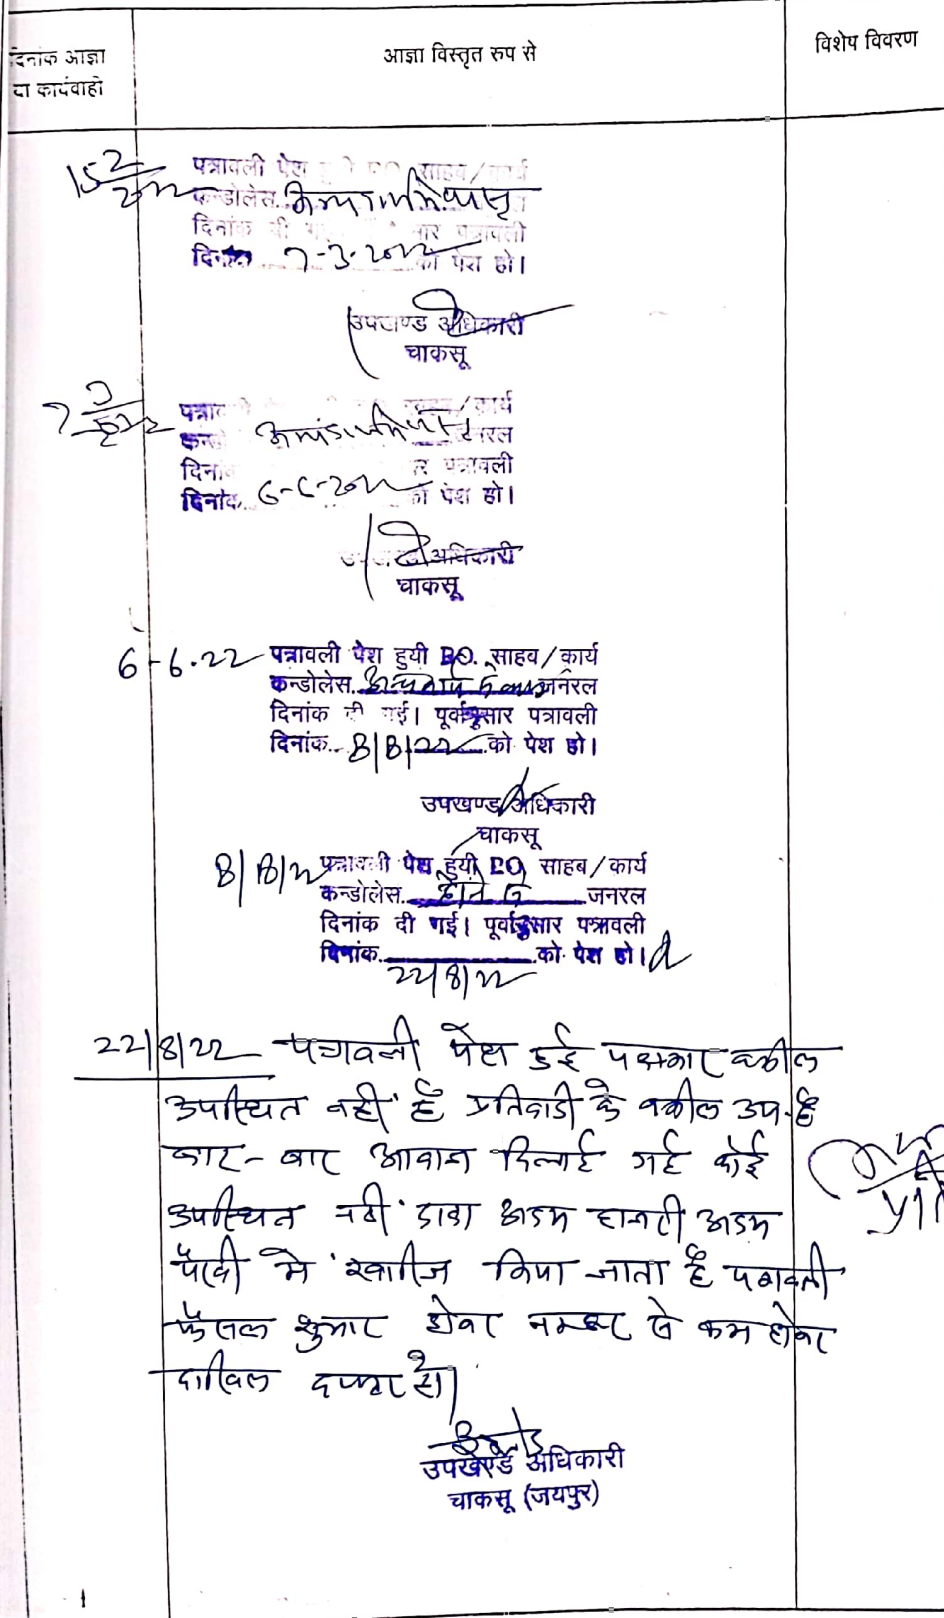 दिनांक आज्ञा
या कार्यवाही
आज्ञा विस्तृत रुप से
विशेष विवरण
पत्रावली पेश साहब/कार्य
कन्डोलेस.
दिनांक दी पत्रावली
दिनांक 7-3-2022 को पेश हो।
उपखण्ड अधिकारी
चाकसू
कार्य
जनरल
दिनांक पत्रावली
दिनांक. 6-6-2022 को पेश हो।
अधिकारी
चाकसू
6-6-22 पत्रावली पेश हुयी P.O. साहब/कार्य
कन्डोलेस. जनरल
दिनांक दी गई। पूर्वानुसार पत्रावली
दिनांक.. 8/8/22 को पेश हो।
उपखण्ड अधिकारी
चाकसू
8/8/22 पत्रावली पेश हुयी P.O. साहब/कार्य
कन्डोलेस. जनरल
दिनांक दी गई। पूर्वानुसार पत्रावली
दिनांक. को पेश हो।
22/8/22
22/8/22 पत्रावली पेश हुई पक्षकार वकील
उपस्थित नहीं है प्रतिवादी के वकील उप. है
बार-बार आवाज दिलाई गई कोई
उपस्थित नहीं दावा अदम हाजरी अदम
पैरवी में खारीज किया जाता है पत्रावली
फैसल शुमार होकर नम्बर से कम होकर
दाखिल दफ्तर हो।
उपखण्ड अधिकारी
चाकसू (जयपुर)